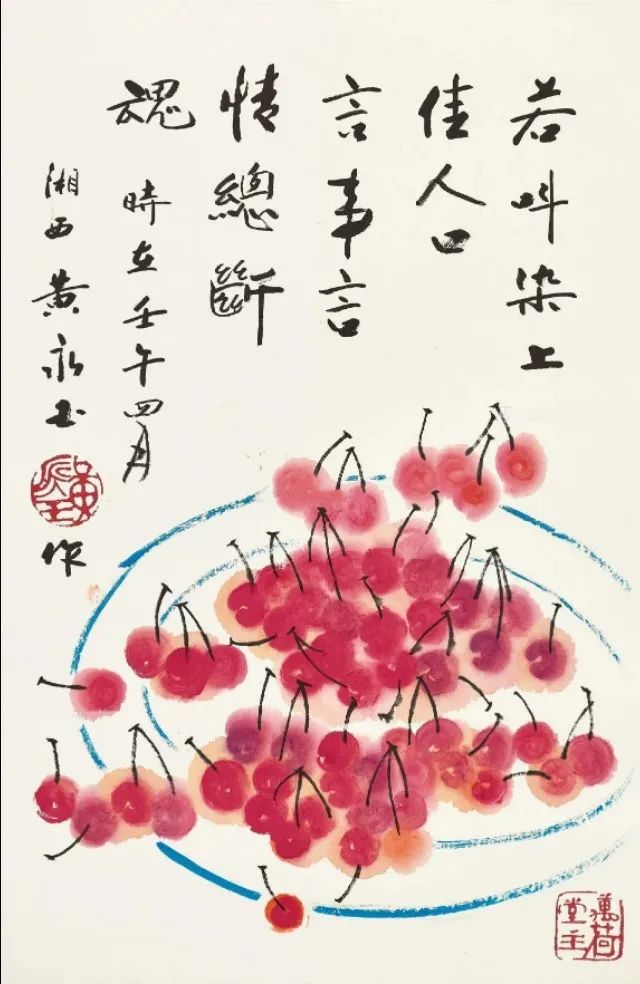 若叫染上
佳人口
言事言
情總斷
魂
時在壬午四月
湘西黃永玉
黃永玉
作
萬荷堂主